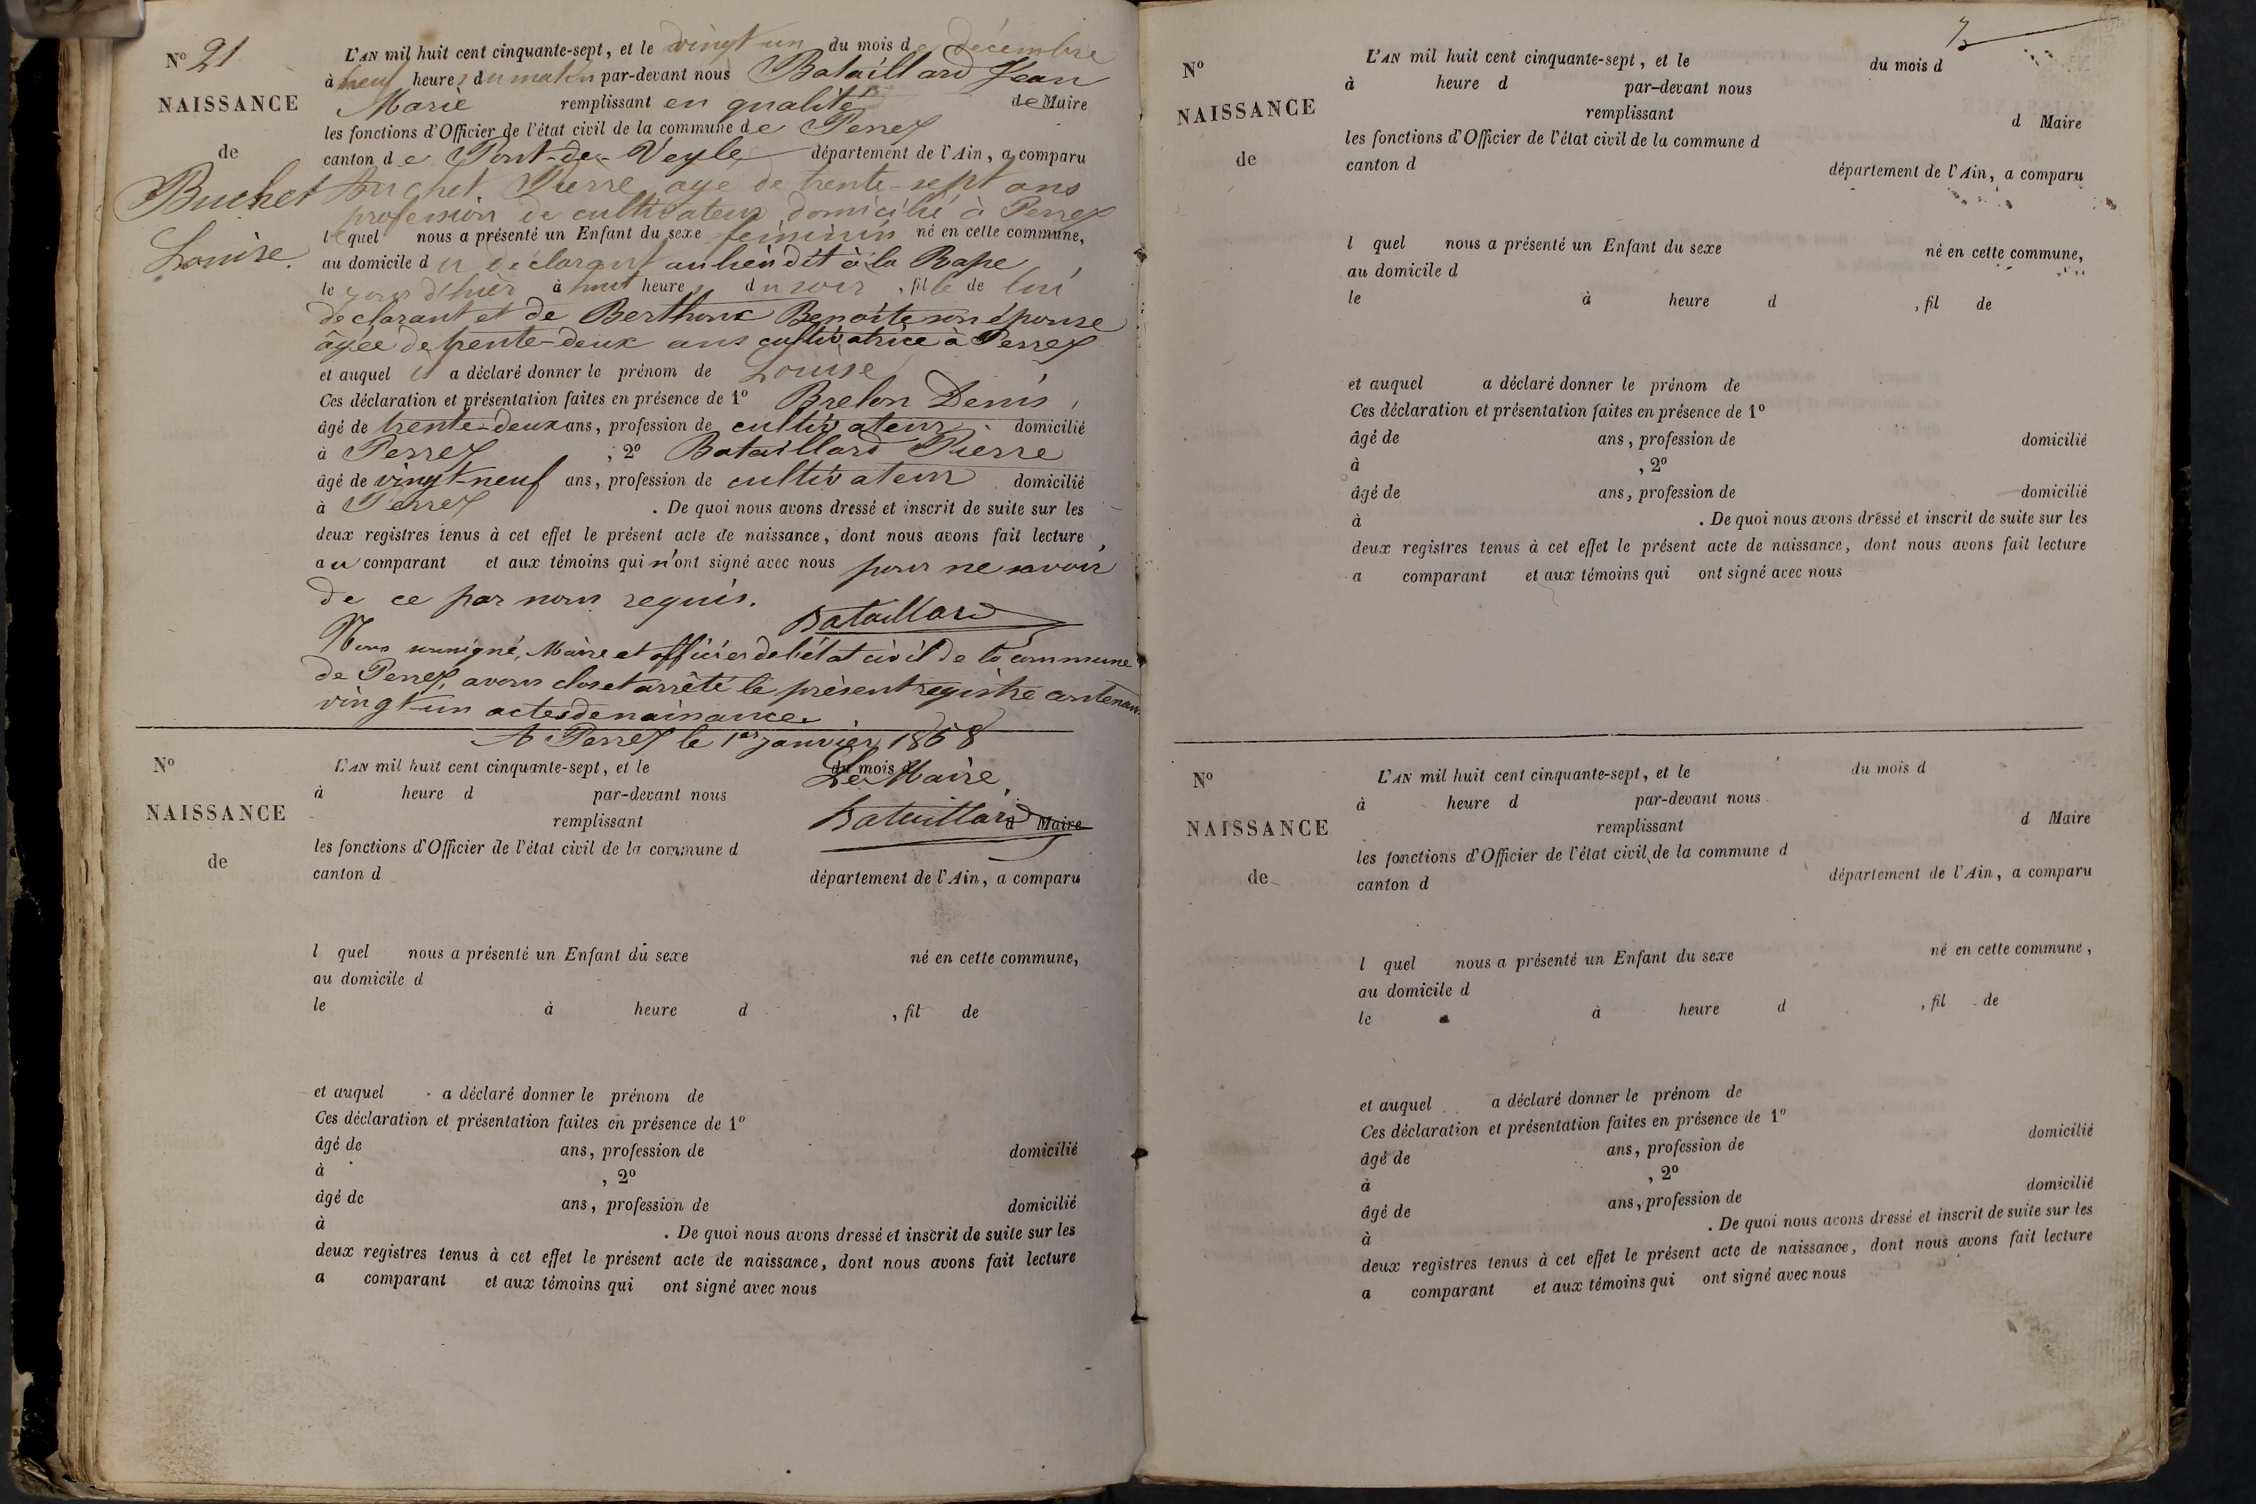 N° 21
NAISSANCE
de
Buchet
Louise.
L'AN mil huit cent cinquante-sept, et le vingt un du mois de décembre
à neuf heures du matin par-devant nous Bataillard Jean
Marie remplissant en qualité de Maire
les fonctions d'Officier de l'état civil de la commune de Perrex
canton de Pont-de-Veyle département de l'Ain, a comparu
Buchet Pierre âgé de trente-sept ans
profession de cultivateur domicilié à Perrex
lequel nous a présenté un Enfant du sexe féminin né en cette commune,
au domicile du déclarant au lieu dit à la Rape,
le jour d'hier à huit heures du soir, fille de lui
déclarant et de Berthoux Benoite son épouse
âgée de trente-deux ans cultivatrice à Perrex
et auquel il a déclaré donner le prénom de Louise
Ces déclaration et présentation faites en présence de 1° Brelon Denis,
âgé de trente-deux ans, profession de cultivateur domicilié
à Perrex, 2° Bataillard Pierre
âgé de vingt-neuf ans, profession de cultivateur domicilié
à Perrex. De quoi nous avons dressé et inscrit de suite sur les
deux registres tenus à cet effet le présent acte de naissance, dont nous avons fait lecture
au comparant et aux témoins qui n'ont signé avec nous pour ne savoir,
de ce par nous requis.
Bataillard
Nous soussigné, Maire et officier de l'état civil de la commune
de Perrex, avons clos et arrêté le présent registre contenant
vingt-un actes de naissance.
A Perrex le 1er janvier 1858
Le Maire,
Bataillard
N°
NAISSANCE
de
L'AN mil huit cent cinquante-sept, et le du mois d
à heure d par-devant nous
remplissant d Maire
les fonctions d'Officier de l'état civil de la commune d
canton d département de l'Ain, a comparu
l quel nous a présenté un Enfant du sexe né en cette commune,
au domicile d
le à heure d , fil de
et auquel a déclaré donner le prénom de
Ces déclaration et présentation faites en présence de 1°
âgé de ans, profession de domicilié
à , 2°
âgé de ans, profession de domicilié
à . De quoi nous avons dressé et inscrit de suite sur les
deux registres tenus à cet effet le présent acte de naissance, dont nous avons fait lecture
a comparant et aux témoins qui ont signé avec nous
N°
NAISSANCE
de
L'AN mil huit cent cinquante-sept, et le du mois d
à heure d par-devant nous
remplissant d Maire
les fonctions d'Officier de l'état civil de la commune d
canton d département de l'Ain, a comparu
l quel nous a présenté un Enfant du sexe né en cette commune,
au domicile d
le à heure d , fil de
et auquel a déclaré donner le prénom de
Ces déclaration et présentation faites en présence de 1°
âgé de ans, profession de domicilié
à , 2°
âgé de ans, profession de domicilié
à . De quoi nous avons dressé et inscrit de suite sur les
deux registres tenus à cet effet le présent acte de naissance, dont nous avons fait lecture
a comparant et aux témoins qui ont signé avec nous
N°
NAISSANCE
de
L'AN mil huit cent cinquante-sept, et le du mois d
à heure d par-devant nous
remplissant d Maire
les fonctions d'Officier de l'état civil de la commune d
canton d département de l'Ain, a comparu
l quel nous a présenté un Enfant du sexe né en cette commune,
au domicile d
le à heure d , fil de
et auquel a déclaré donner le prénom de
Ces déclaration et présentation faites en présence de 1°
âgé de ans, profession de domicilié
à , 2°
âgé de ans, profession de domicilié
à . De quoi nous avons dressé et inscrit de suite sur les
deux registres tenus à cet effet le présent acte de naissance, dont nous avons fait lecture
a comparant et aux témoins qui ont signé avec nous